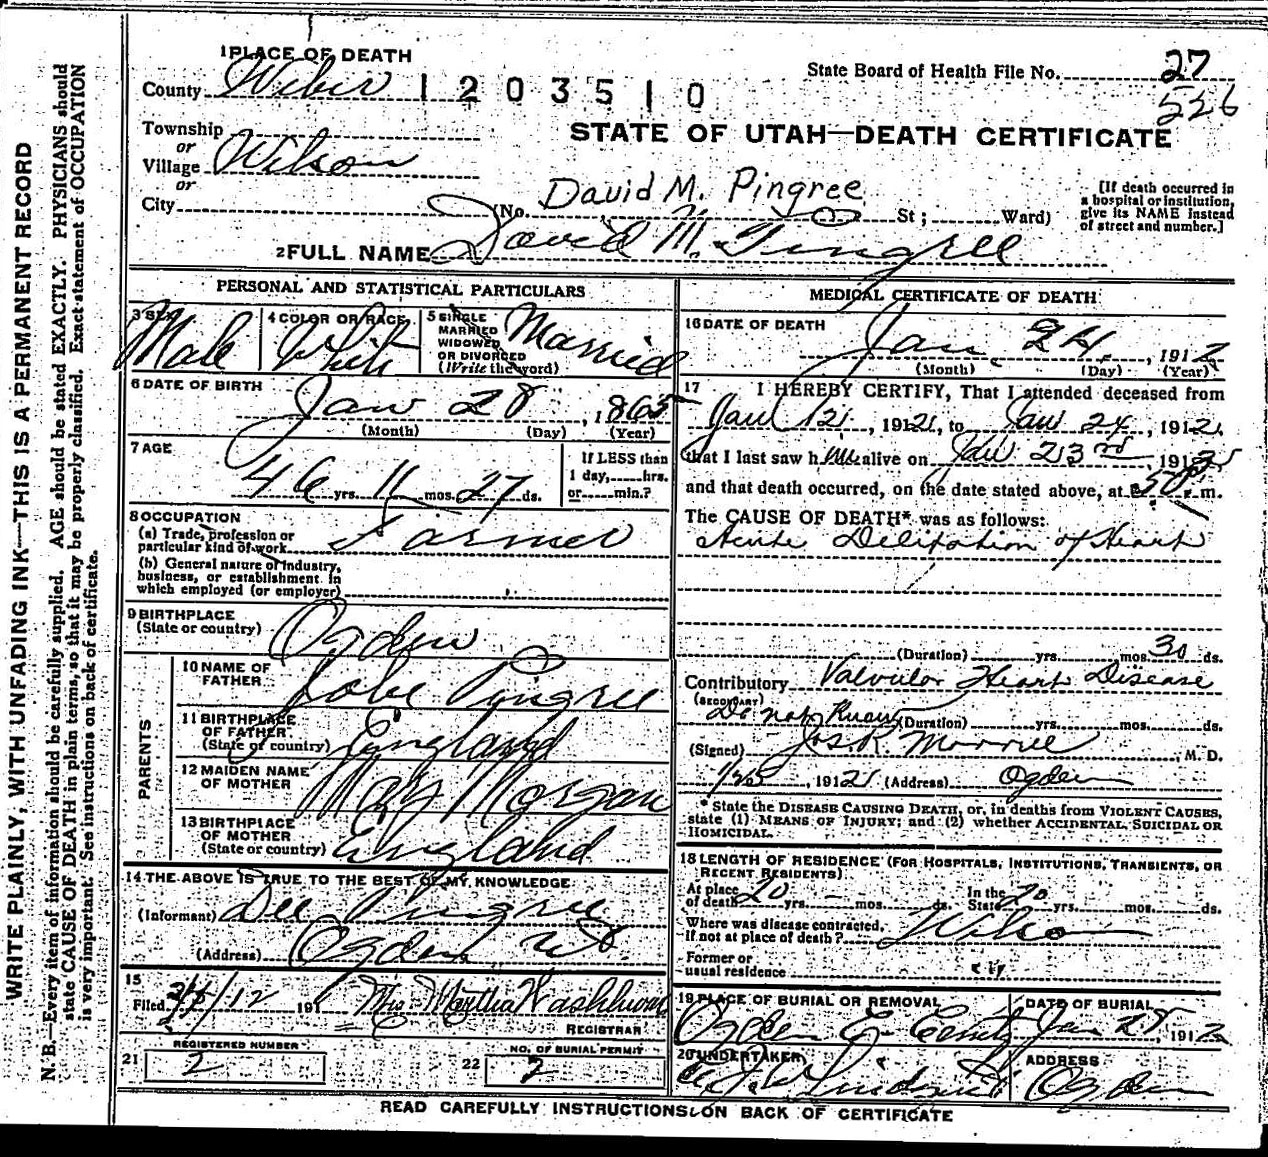 WRITE PLAINLY, WITH UNFADING INK—THIS IS A PERMANENT RECORD
N. B.—Every item of information should be carefully supplied. AGE should be stated EXACTLY. PHYSICIANS should
state CAUSE OF DEATH in plain terms, so that it may be properly classified. Exact statement of OCCUPATION
is very important. See instructions on back of certificate.
1 PLACE OF DEATH
County Weber 1203510
State Board of Health File No. 27
526
STATE OF UTAH—DEATH CERTIFICATE
Township
or
Village Wilson
or
City
(No. St; Ward)
David M. Pingree
[If death occurred in
a hospital or institution,
give its NAME instead
of street and number.]
2 FULL NAME David M. Pingree
PERSONAL AND STATISTICAL PARTICULARS
3 SEX Male
4 COLOR OR RACE White
5 SINGLE
MARRIED
WIDOWED
OR DIVORCED
(Write the word) Married
6 DATE OF BIRTH
Jan 28, 1865
(Month) (Day) (Year)
7 AGE
46 yrs. 11 mos. 27 ds.
If LESS than
1 day, hrs.
or min.?
8 OCCUPATION
(a) Trade, profession or
particular kind of work Farmer
(b) General nature of industry,
business, or establishment in
which employed (or employer)
9 BIRTHPLACE
(State or country) Ogden
PARENTS
10 NAME OF
FATHER Pingree
11 BIRTHPLACE
OF FATHER
(State or country) England
12 MAIDEN NAME
OF MOTHER Mary Morgan
13 BIRTHPLACE
OF MOTHER
(State or country) England
14 THE ABOVE IS TRUE TO THE BEST OF MY KNOWLEDGE
(Informant) Dee Pingree
(Address) Ogden
15
Filed 191 Mrs Martha Washburn
REGISTRAR
REGISTERED NUMBER
21 2
NO. OF BURIAL PERMIT
22 2
MEDICAL CERTIFICATE OF DEATH
16 DATE OF DEATH
Jan. 24, 1912
(Month) (Day) (Year)
17 I HEREBY CERTIFY, That I attended deceased from
Jan 12, 1912, to Jan 24, 1912,
that I last saw him alive on Jan 23rd, 1912
and that death occurred, on the date stated above, at m.
The CAUSE OF DEATH* was as follows:
Acute Delitation of Heart
(Duration) yrs. mos. 30 ds.
Contributory Valvular Heart Disease
(SECONDARY)
Do not Know (Duration) yrs. mos. ds.
(Signed) Jos. R. Morrell, M. D.
1/25, 1912 (Address) Ogden
* State the DISEASE CAUSING DEATH, or, in deaths from VIOLENT CAUSES,
state (1) MEANS OF INJURY; and (2) whether ACCIDENTAL, SUICIDAL OR
HOMICIDAL.
18 LENGTH OF RESIDENCE (FOR HOSPITALS, INSTITUTIONS, TRANSIENTS, OR
RECENT RESIDENTS)
At place
of death 20 yrs. mos. ds.
In the
State 20 yrs. mos. ds.
Where was disease contracted,
if not at place of death? Wilson
Former or
usual residence
19 PLACE OF BURIAL OR REMOVAL
Ogden
DATE OF BURIAL
Jan 28, 1912
20 UNDERTAKER
ADDRESS
Ogden
READ CAREFULLY INSTRUCTIONS ON BACK OF CERTIFICATE